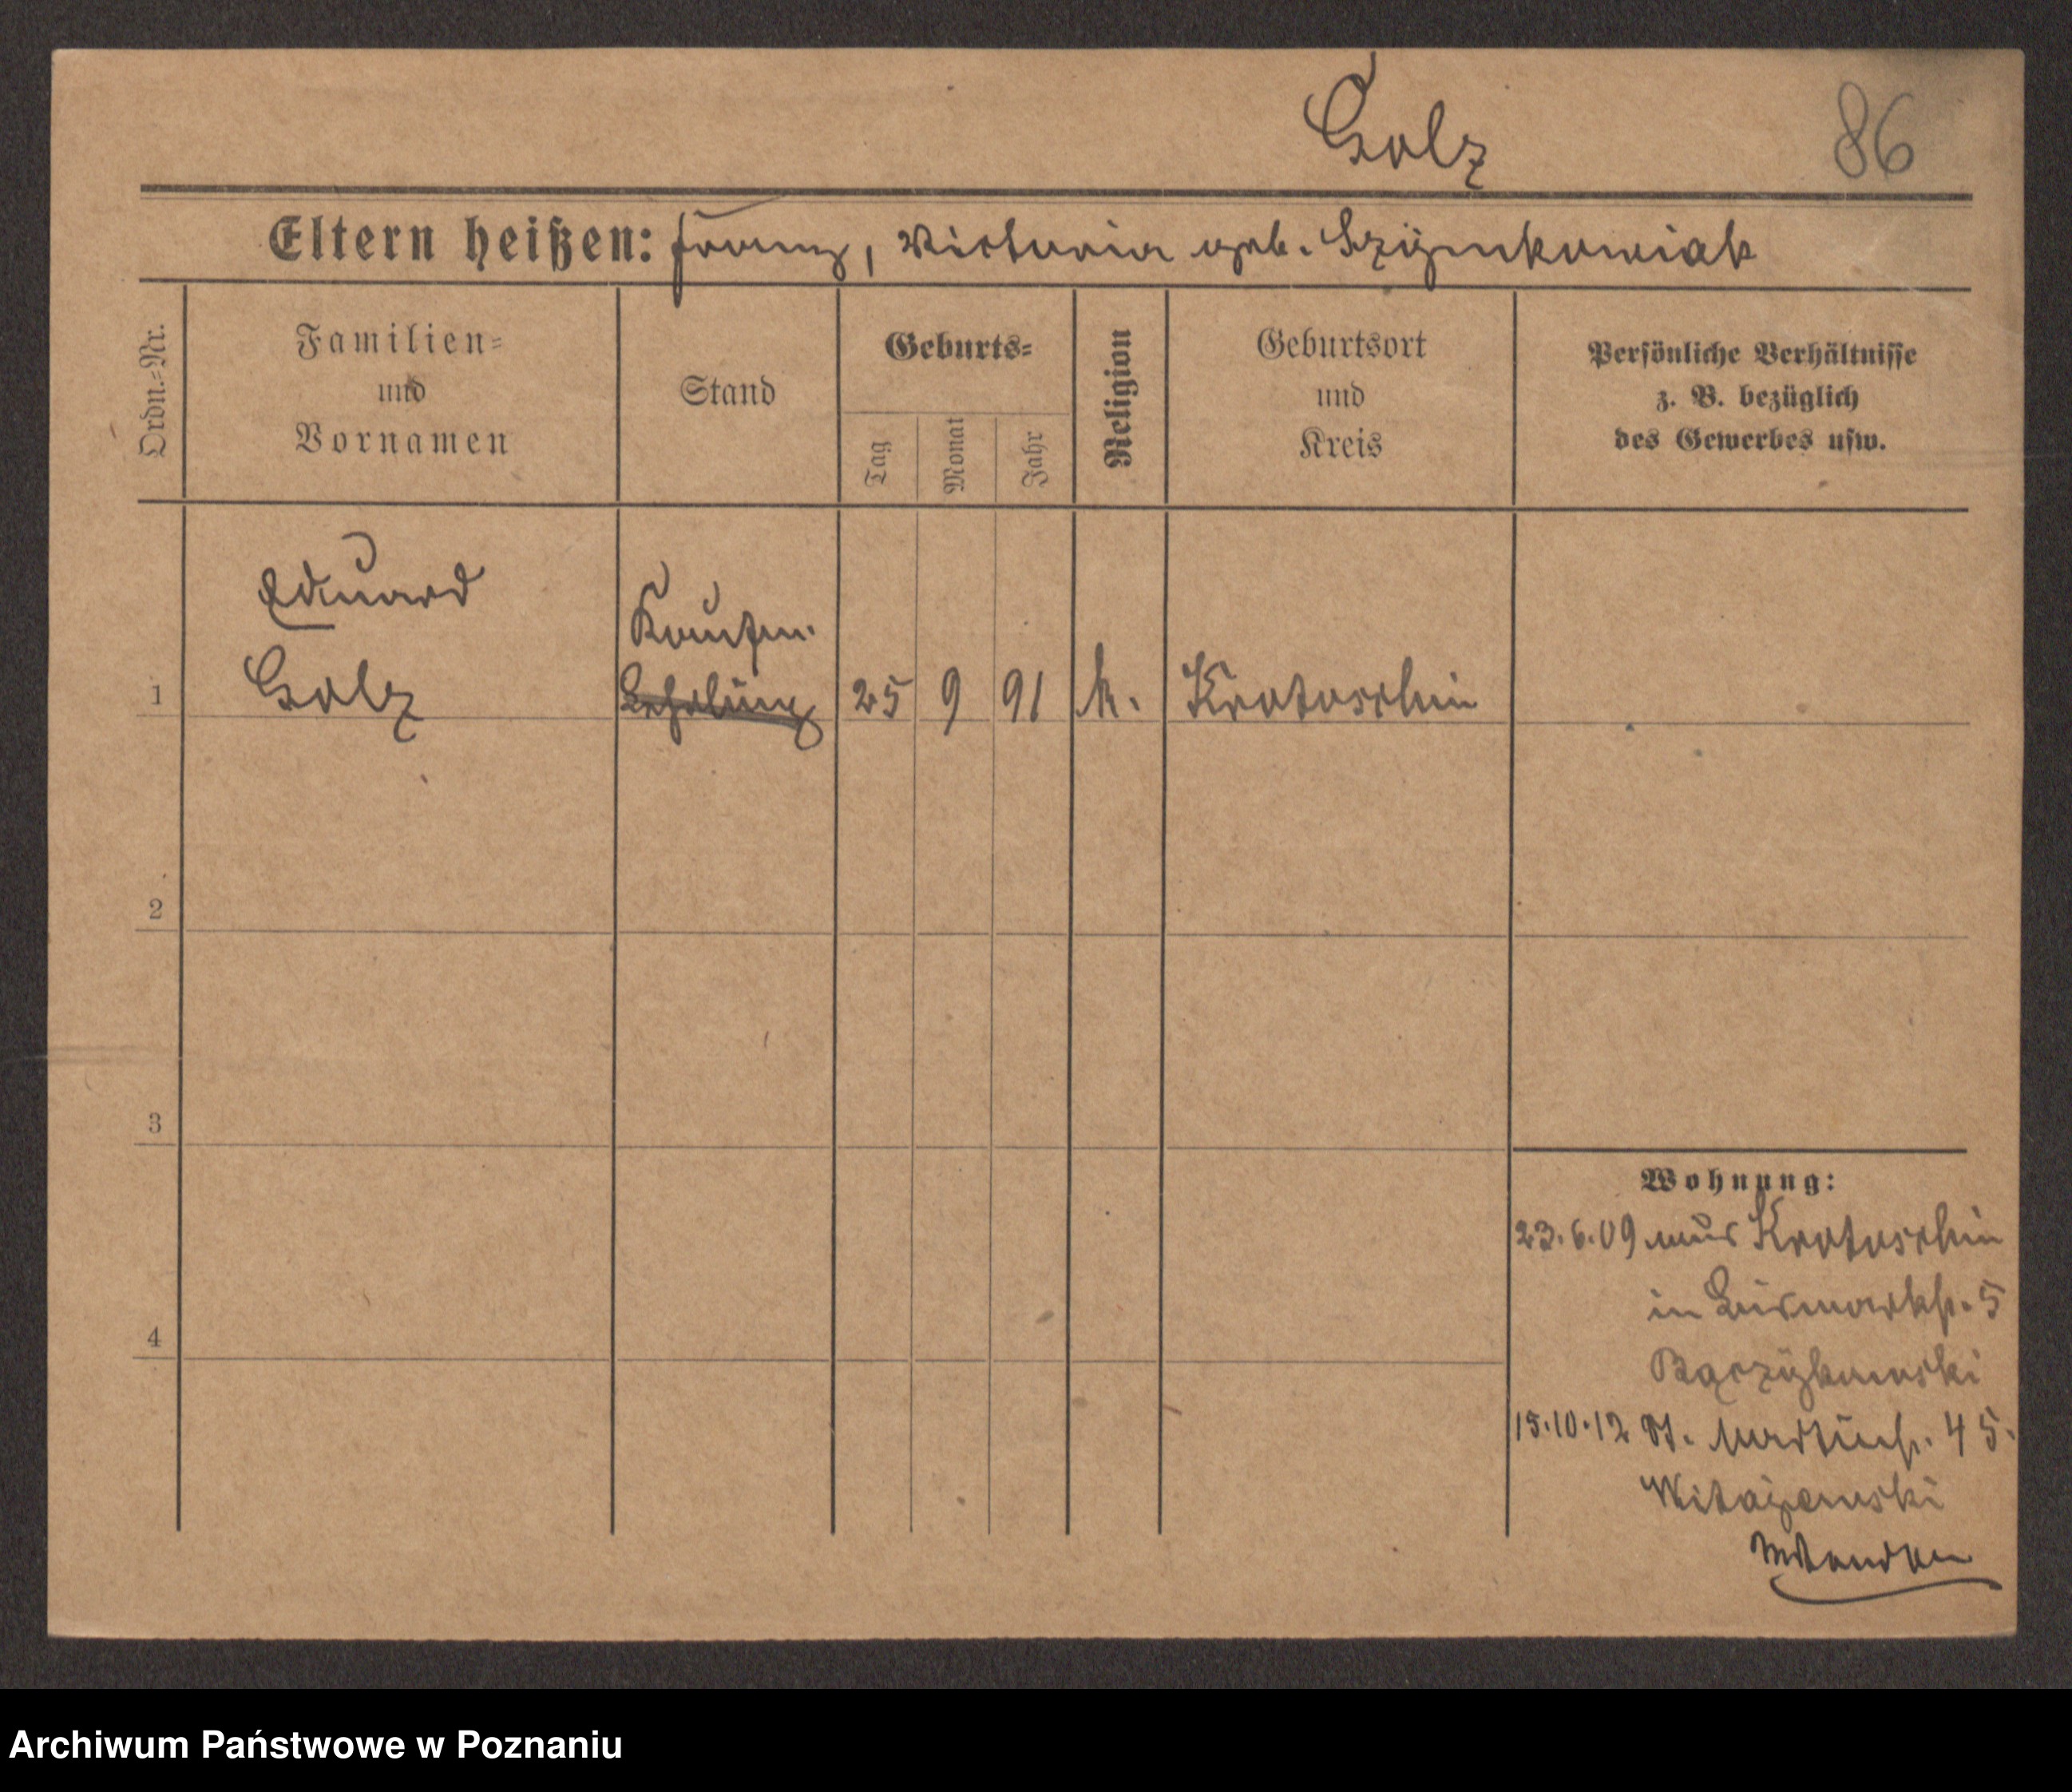 Golz
86
Eltern heißen: Franz, Victoria geb. Szymkowiak
Ordn.=Nr.
Familien=
und
Vornamen
Stand
Geburts=
Tag
Monat
Jahr
Religion
Geburtsort
und
Kreis
Persönliche Verhältnisse
z. B. bezüglich
des Gewerbes usw.
Eduard
Kaufm.
1 Golz Lehrling 25 9 91 k. Krotoschin
2
3
4
Wohnung:
23.6.09 aus Krotoschin
in Bismarkstr. 5
Bączykowski
15.10.12 St. Martinstr. 45.
Witajewski
Archiwum Państwowe w Poznaniu